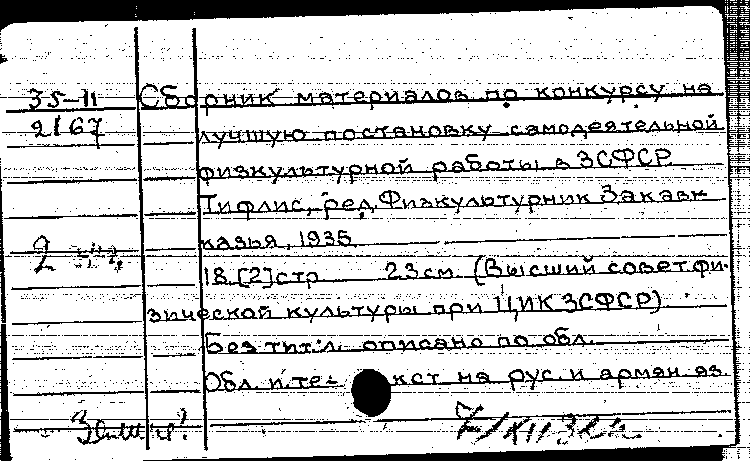 35-11 Сборник материалов по конкурсу на
2167 лучшую постановку самодеятельной
физкультурной работы в ЗСФСР.
Тифлис, ред. Физкультурник Закавк
казья, 1935.
2
18 [2] стр 23 см. (Высший совет фи-
зической культуры при ЦИК ЗСФСР)
Без тит. л. описано по обл.
Обл. и те- кст на рус. и армян яз.